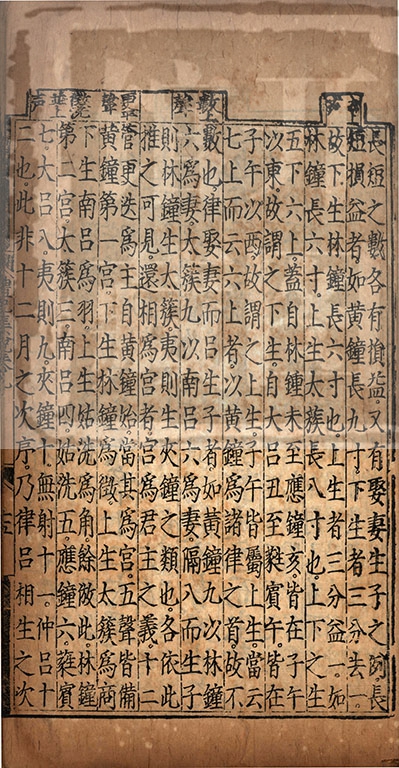 長短之數各有損益又有娶妻生子之詞長
短損益者如黃鐘長九寸下生者三分去一
故下生林鐘長六寸也上生者三分益一如
林鐘長六寸上生太簇長八寸也上下之生
五下六上蓋自林鐘未至應鐘亥皆在子午
以東故謂之下生自大呂丑至蕤賓午皆在
子午以西故謂之上生子午皆屬上生當云
七上而云六上者以黃鐘爲諸律之首故不
數也律娶妻而呂生子者如黃鐘九以林鐘
六爲妻太簇九以南呂六爲妻隔八而生子
則林鐘生太簇夷則生夾鐘之類也各依此
推之可見還相爲宮者宮爲君主之義十二
管更迭爲主自黃鐘始當其爲宮五聲皆備
黃鐘第一宮下生林鐘爲徵上生太簇爲商
下生南呂爲羽上生姑洗爲角餘倣此林鐘
第二宮太簇三南呂四姑洗五應鐘六蕤賓
七大呂八夷則九夾鐘十無射十一仲呂十
二也此非十二月之次序乃律呂相生之次